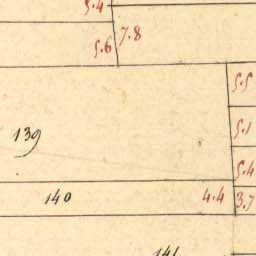 5.4
7.8
5.6
5.5
5.1
139
5.4
140
4.4
3.7
141